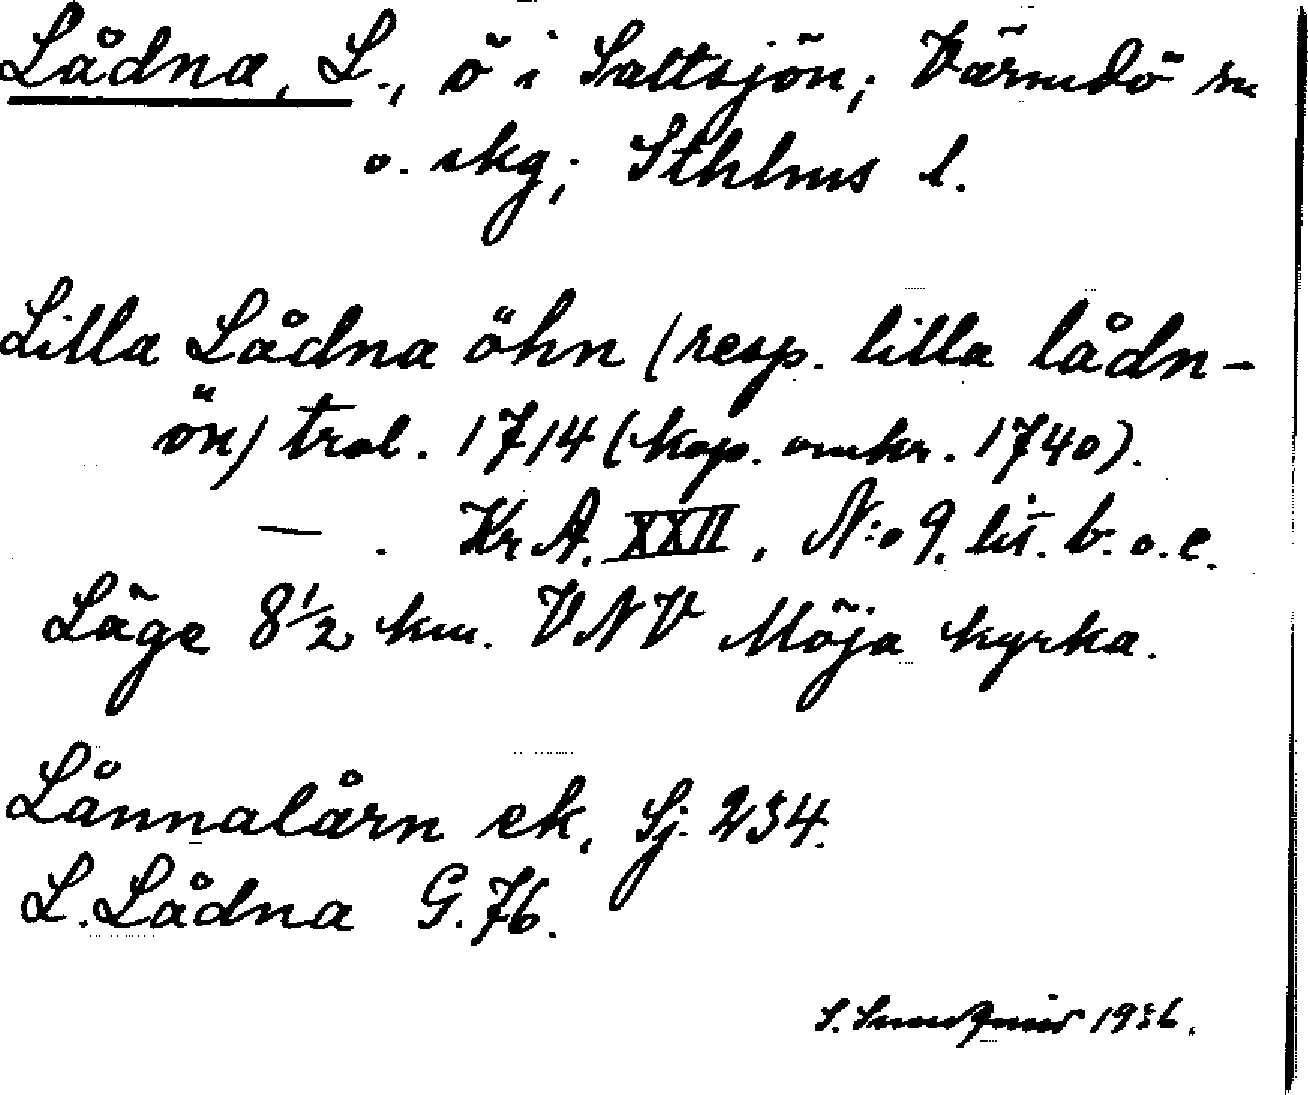 Lådna, L., ö i Saltsjön; Värmdö sn
o. skg; Sthlms l.
Lilla Lådna öhn (resp. lilla lådn-
ön) trol. 1714 (kop. omkr. 1740).
— . Kr A. XXII, N:o 9. lit. b. o. c.
Läge 8 1/2 km. VNV Möja kyrka.
Lånnalårn ek, Sj. 234.
L. Lådna G. 76.
S. 1936.